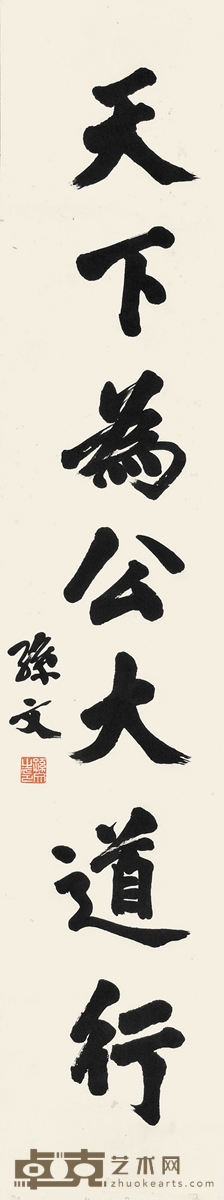 天下為公大道行
孫文
卓克艺术网
zhuokearts.com